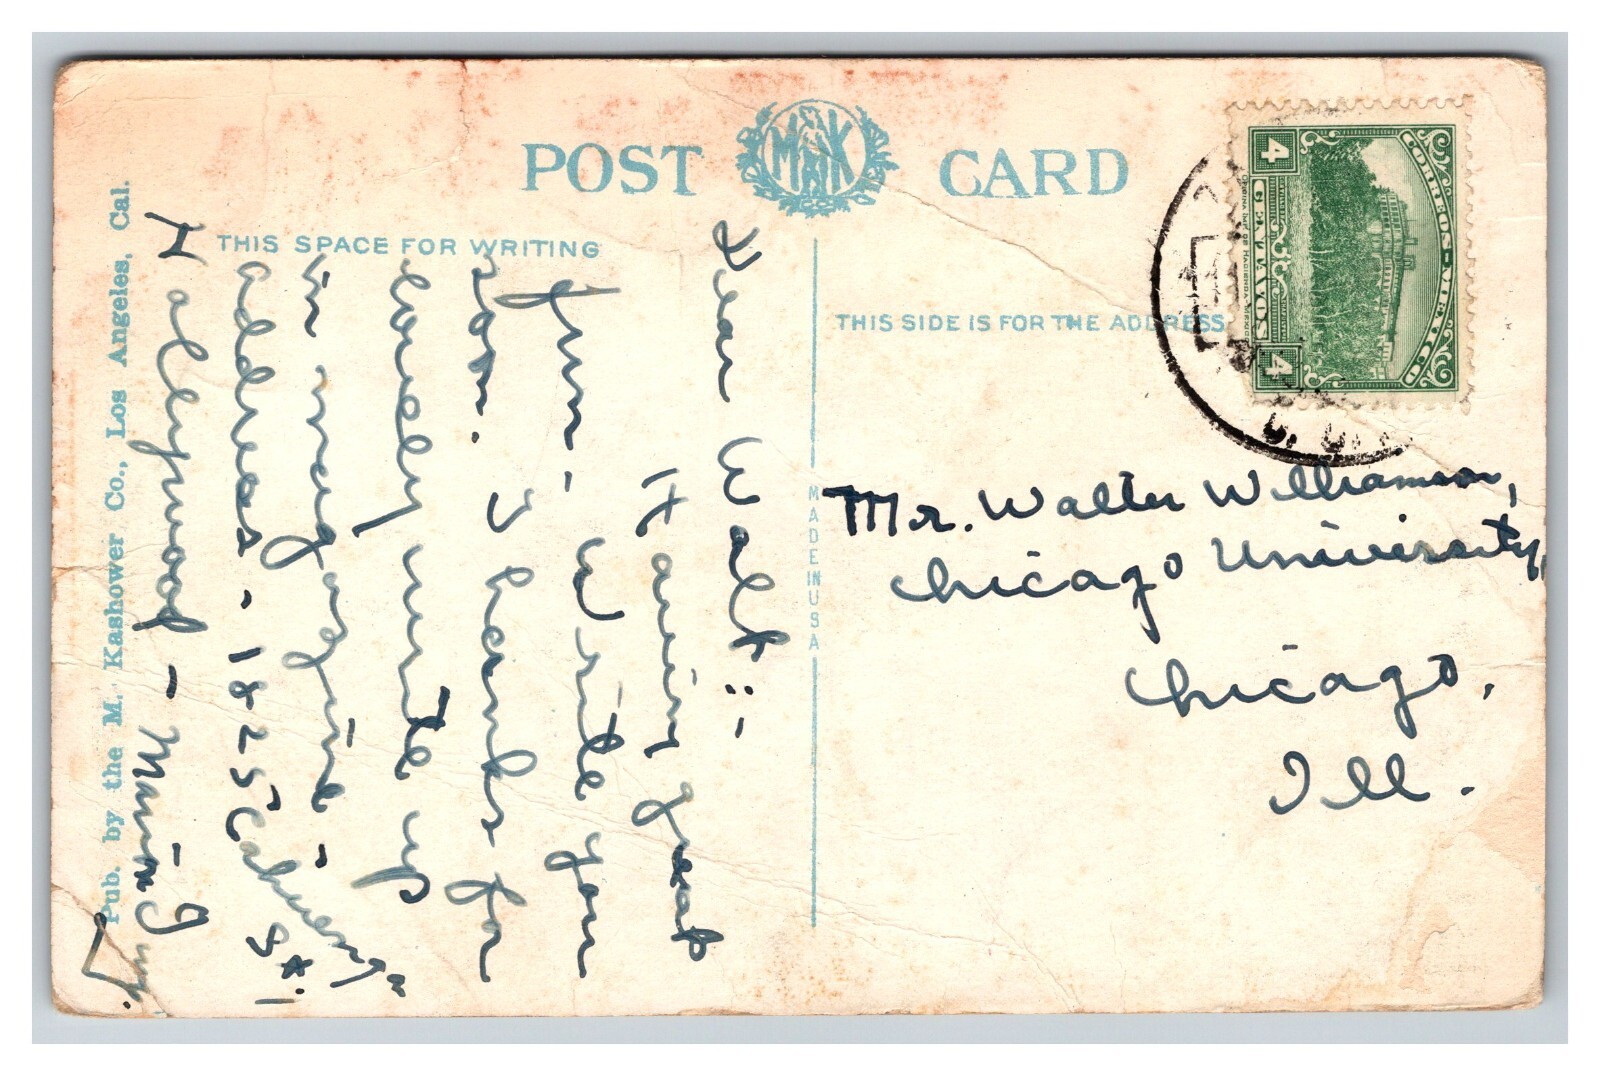 POST CARD
M K
& CO
THIS SPACE FOR WRITING
THIS SIDE IS FOR THE ADDRESS
MADE IN USA
Pub. by the M. Kashower Co., Los Angeles, Cal.
CORREOS-MEXICO
4 CENTAVOS 4
Dear Walt:-
Having great
fun - Write you
soon. Thanks for
lovely write up
in magazine -
address - 1825 Cahuenga
St.
Hollywood -
Mr. Walter Williamson,
Chicago University,
Chicago,
Ill.